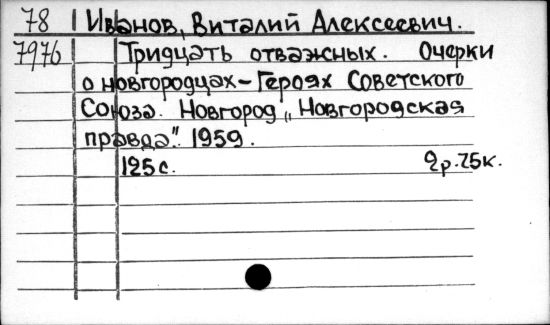 78 Иванов, Виталий Алексеевич.
7976 Тридцать отважных. Очерки
о новгородцах-Героях Советского
Союза. Новгород „Новгородская
правда". 1959.
125с. 2р.75к.